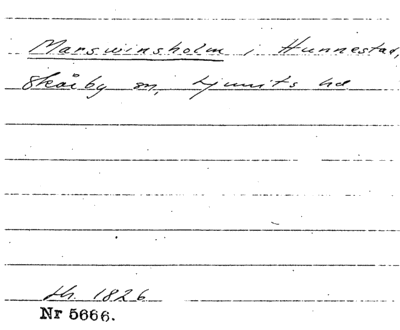 Marswinsholm i Hunnestad,
Skårby sn, Ljunits hd
th. 1826
Nr 5666.